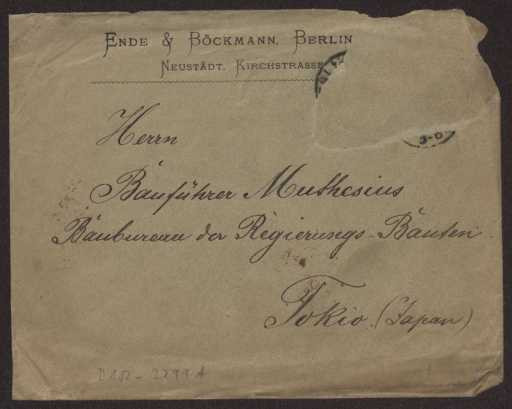 ENDE & BÖCKMANN, BERLIN
NEUSTÄDT. KIRCHSTRASSE
Herrn
Bauführer Muthesius
Baubureau der Regierungs-Bauten
Tokio (Japan)